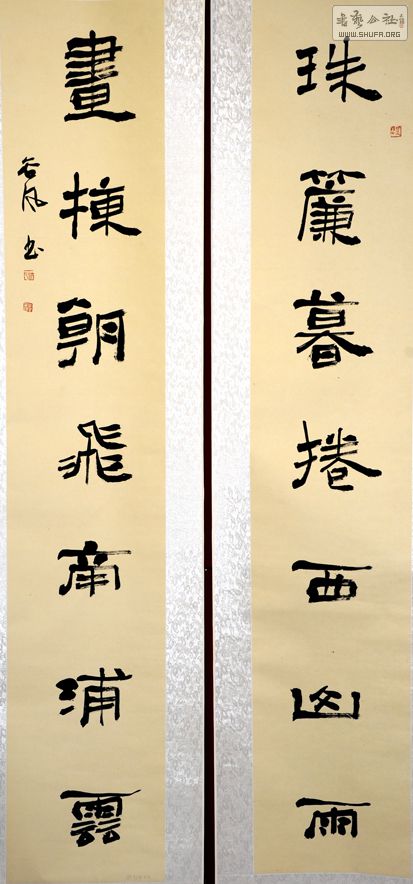 珠簾暮捲西山雨
畫棟朝飛南浦雲
谷风书
书艺公社
WWW.SHUFA.ORG